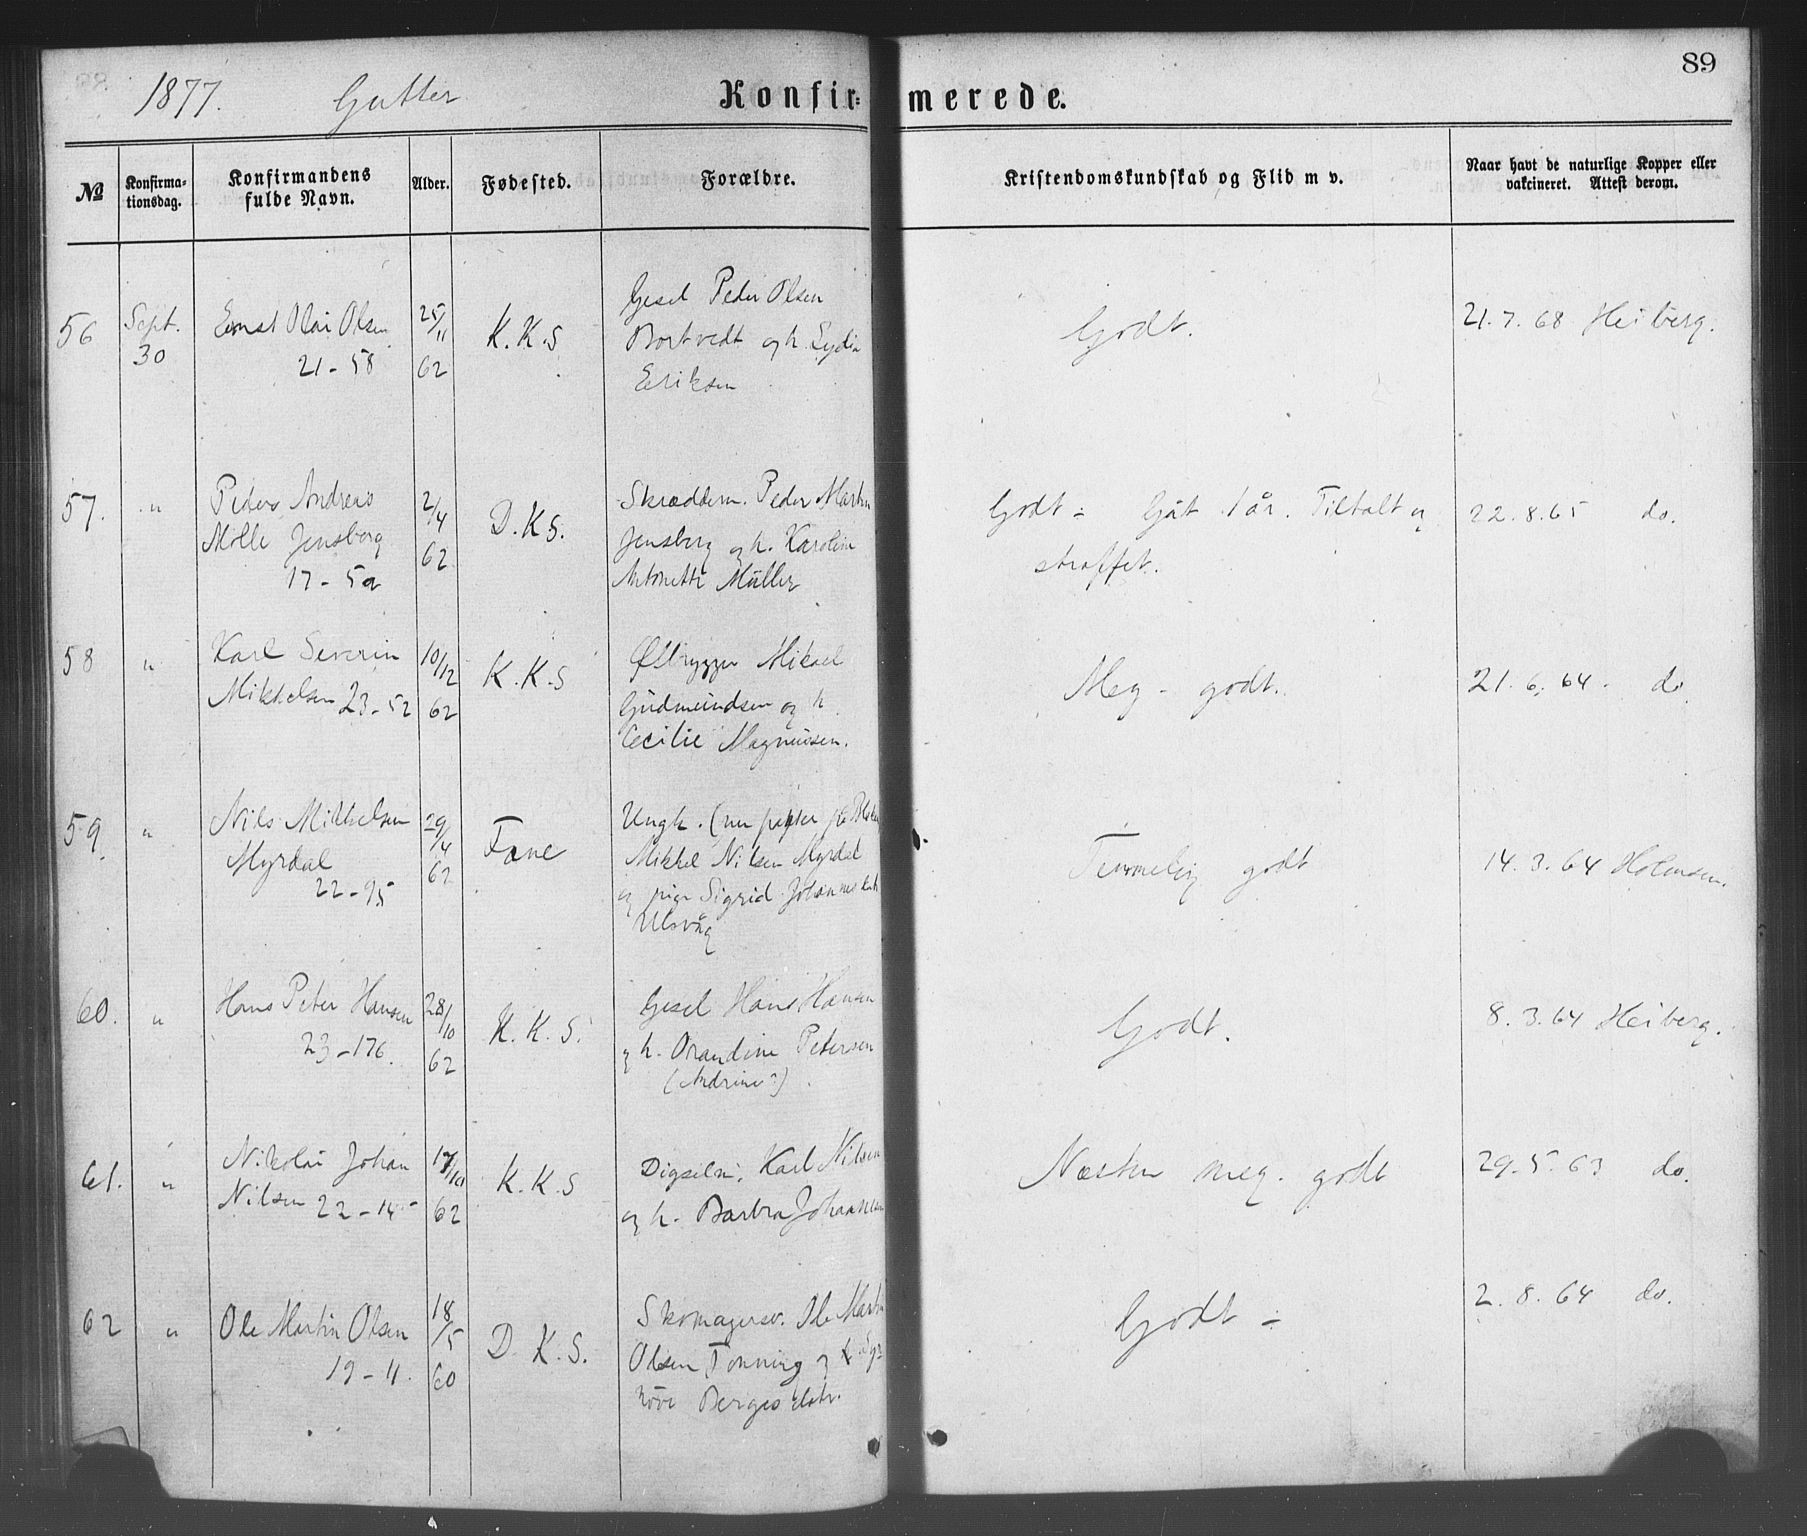 89
1877. Gutter Konfir= merede.
№ Konfirma=tionsdag. Konfirmandens fulde Navn. Alder. Fødested. Forældre. Kristendomskundskab og Flid m v. Naar havt de naturlige Kopper eller vakcineret. Attest derom.
56 Sept. 30 Ernst Olai Olsen 21-58 25/11 62 K.K.S
Gesel Peder Olsen
Bortvedt og h. Lydia
Eriksen
Godt. 21.7.68 Heiberg.
57. " Peder Andreas
Mölle Jensberg
17-52 2/4 62 D.K.S.
Skræddern. Peder Martin
Jensberg og h. Karoline
Antonette Müller
Godt - Gåt 1 år. Tiltalt og
straffet.
22.8.65 do.
58 " Karl Severin
Mikkelsen 23-52 10/12 62 K.K.S
Ølbrygger Mikael
Gudmundsen og h
Cecilie Magnusen.
Meg. godt. 21.6.64. do
59. " Nils Mikkelsen
Myrdal
22-95 29/4 62 Fane
Ungk.
Mikkel Nilsen Myrdal
og pige Sigrid Johannesdatr
Ulsvåg
Temmelig godt 14.3.64 Holmsen.
60. " Hans Peter Hansen
23-176. 28/10 62 K.K.S.
Gesel Hans Hansen
og h. Orandine Petersen
(Andrine?)
Godt. 8.3.64 Heiberg.
61. " Nikolai Johan
Nilsen 22-145 17/10 62 K.K.S
Digselm. Karl Nilsen
og h. Barbra Johannesen
Næsten meg. godt 29.5.63 do.
62 " Ole Martin Olsen
19-11. 18/5 60 D.K.S.
Skomagersv. Ole Martin
Olsen Tonning og h Syn
növe Bergesdatr.
Godt - 2.8.64 do.